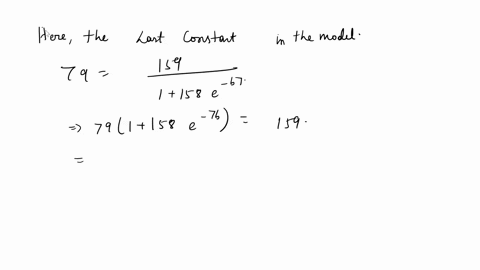 Here, the Last Constant in the model.
79 = 159 / 1 + 158 e^-67.
⇒ 79 (1 + 158 e^-76) = 159.
=